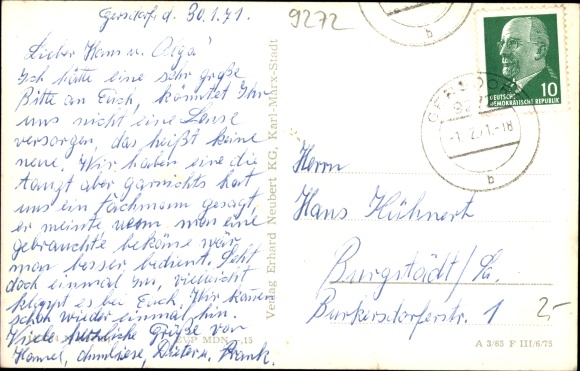 Gersdorf, d. 30.1.71.
Lieber Hans u. Olga
Ich hätte eine sehr große
Bitte an Euch, könntet Ihr
uns nicht eine Sense
versorgen, das heißt keine
neue. Wir haben eine die
taugt aber garnichts hat
uns ein Fachmann gesagt,
er meinte wenn man eine
gebrauchte bekäme wär
man besser bedient. Seht
doch einmal zu, vielleicht
klappt es bei Euch. Wir kommen
schon wieder einmal hin.
Viele herzliche Grüße von
Dieter u. Frank.
MDN -.15
Verlag Erhard Neubert KG, Karl-Marx-Stadt
9272
b
10
DEUTSCHE
DEMOKRATISCHE REPUBLIK
GERSDORF
9272
-1.2.71.-18
b
Herrn
Hans Hühnert
Burgstädt/Sa.
Burkersdorferstr. 1
2-
A 3/65 F III/6/75